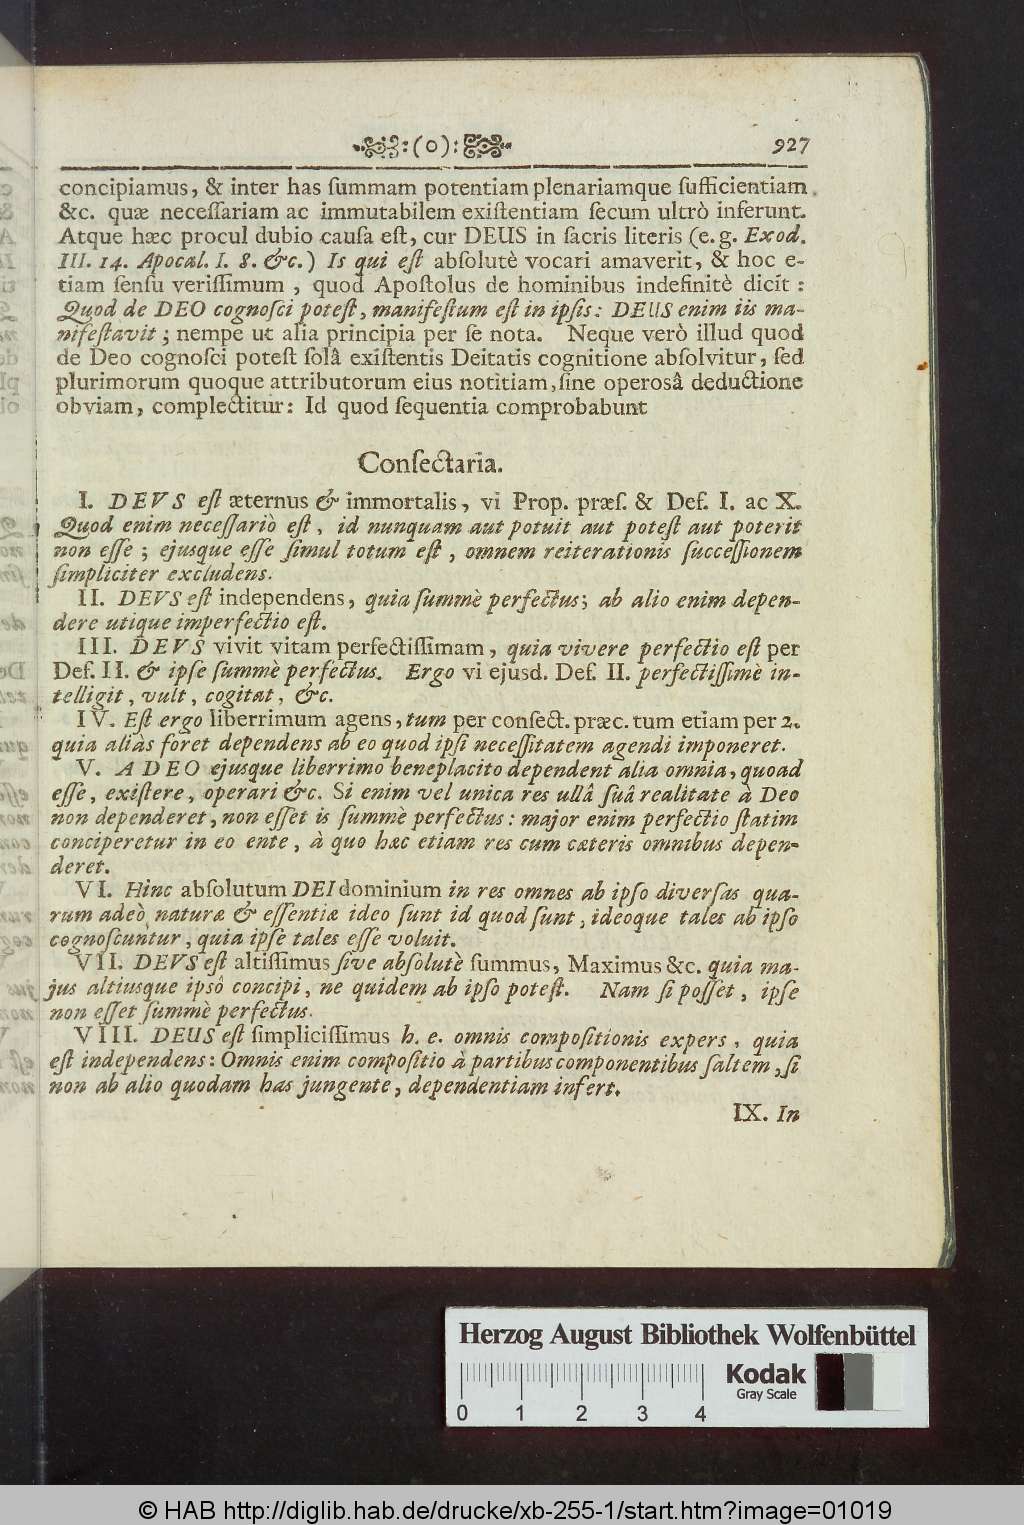 :(o): 927
concipiamus, & inter has ſummam potentiam plenariamque ſufficientiam
&c. quæ neceſſariam ac immutabilem exiſtentiam ſecum ultrò inferunt.
Atque hæc procul dubio cauſa eſt, cur DEUS in ſacris literis (e. g. Exod.
III. 14. Apocal. I. 8. &c.) Is qui eſt abſolutè vocari amaverit, & hoc e-
tiam ſenſu veriſſimum, quod Apoſtolus de hominibus indefinitè dicit:
Quod de DEO cognoſci poteſt, manifeſtum eſt in ipſis: DEUS enim iis ma-
nifeſtavit; nempe ut alia principia per ſe nota. Neque verò illud quod
de Deo cognoſci poteſt ſolâ exiſtentis Deitatis cognitione abſolvitur, ſed
plurimorum quoque attributorum eius notitiam, ſine operosâ deductione
obviam, complectitur: Id quod ſequentia comprobabunt
Conſectaria.
I. DEVS eſt æternus & immortalis, vi Prop. præſ. & Def. I. ac X.
Quod enim neceſſariò eſt, id nunquam aut potuit aut poteſt aut poterit
non eſſe; ejusque eſſe ſimul totum eſt, omnem reiterationis ſucceſſionem
ſimpliciter excludens.
II. DEVS eſt independens, quia ſummè perfectus; ab alio enim depen-
dere utique imperfectio eſt.
III. DEVS vivit vitam perfectiſſimam, quia vivere perfectio eſt per
Def. II. & ipſe ſummè perfectus. Ergo vi ejusd. Def. II. perfectiſſimè in-
telligit, vult, cogitat, &c.
IV. Eſt ergo liberrimum agens, tum per conſect. præc. tum etiam per 2.
quia aliàs foret dependens ab eo quod ipſi neceſſitatem agendi imponeret.
V. A DEO ejusque liberrimo beneplacito dependent alia omnia, quoad
eſſe, exiſtere, operari &c. Si enim vel unica res ullâ ſuâ realitate à Deo
non dependeret, non eſſet is ſummè perfectus: major enim perfectio ſtatim
conciperetur in eo ente, à quo hæc etiam res cum cæteris omnibus depen-
deret.
VI. Hinc abſolutum DEI dominium in res omnes ab ipſo diverſas qua-
rum adeò naturæ & eſſentiæ ideo ſunt id quod ſunt, ideoque tales ab ipſo
cognoſcuntur, quia ipſe tales eſſe voluit.
VII. DEVS eſt altiſſimus ſive abſolutè ſummus, Maximus &c. quia ma-
jus altiusque ipsô concipi, ne quidem ab ipſo poteſt. Nam ſi poſſet, ipſe
non eſſet ſummè perfectus.
VIII. DEUS eſt ſimpliciſſimus h. e. omnis compoſitionis expers, quia
eſt independens: Omnis enim compoſitio à partibus componentibus ſaltem, ſi
non ab alio quodam has jungente, dependentiam infert.
IX. In
Herzog August Bibliothek Wolfenbüttel
Kodak
Gray Scale
0 1 2 3 4
© HAB http://diglib.hab.de/drucke/xb-255-1/start.htm?image=01019